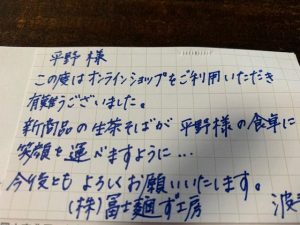 平野様
この度はオンラインショップをご利用いただき
有難うございました。
新商品の生茶そばが平野様の食卓に
笑顔を運べますように…
今後ともよろしくお願いいたします。
(株)冨士麺ず工房